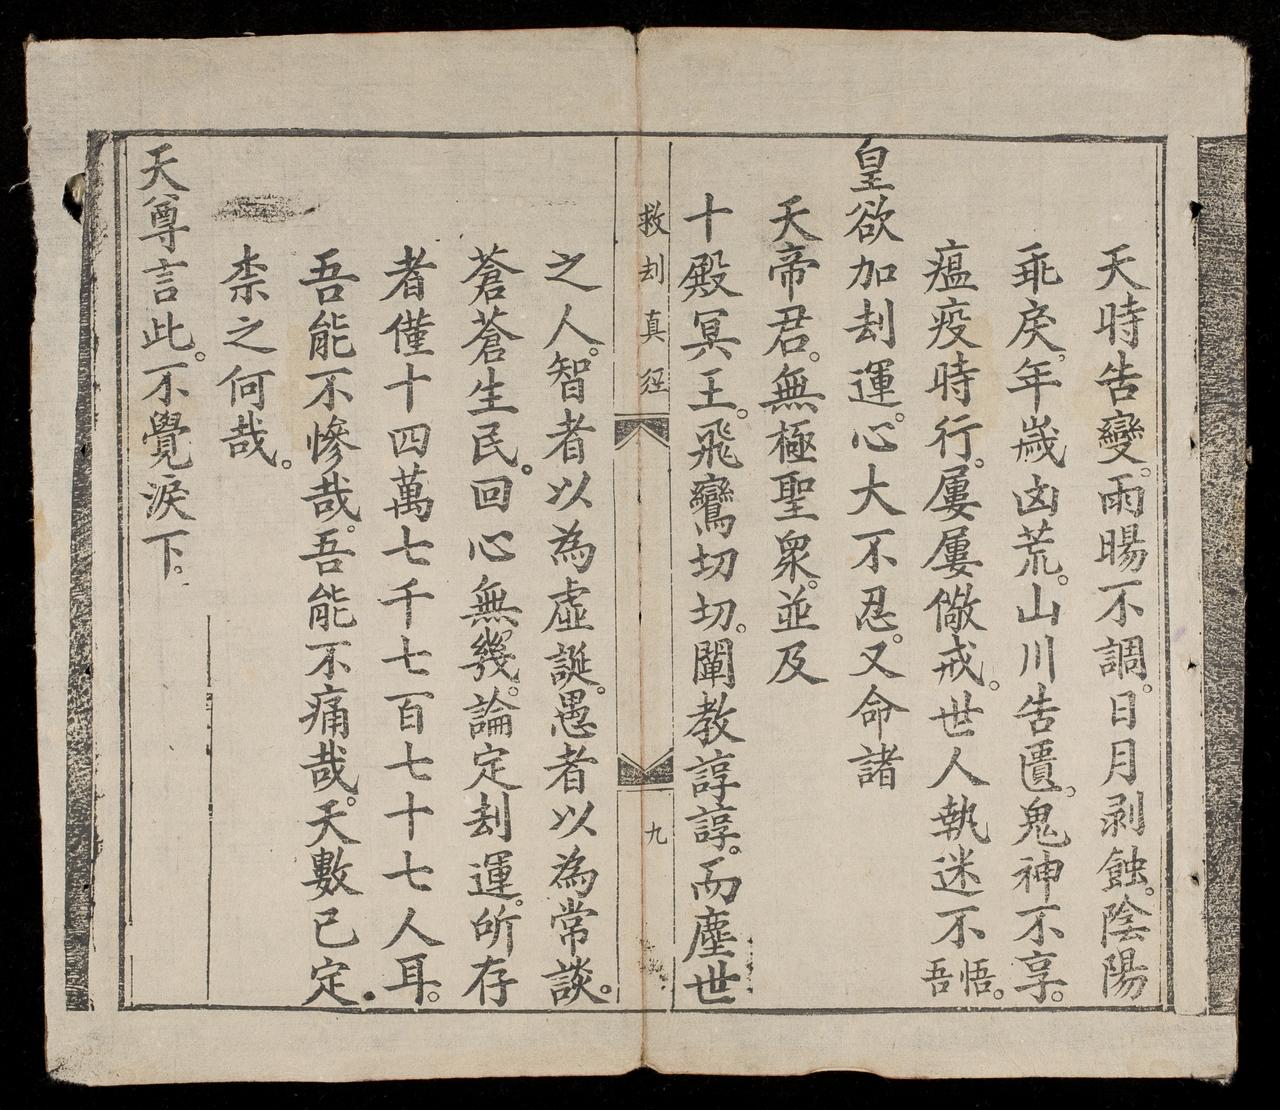 天時告變。雨暘不調。日月剥蝕。陰陽
乖戾。年嵗凶荒。山川告匱。鬼神不享。
瘟疫時行。屢屢儆戒。世人執迷不悟。吾
皇欲加刦運。心大不忍。又命諸
天帝君。無極聖衆。並及
十殿冥王。飛鸞切切。闡教諄諄。而塵世
救刦真経
九
之人。智者以為虛誕。愚者以為常談。
蒼蒼生民。回心無幾。論定刦運。所存
者僅十四萬七千七百七十七人耳。
吾能不慘哉。吾能不痛哉。天數已定。
柰之何哉。
天尊言此。不覺淚下。